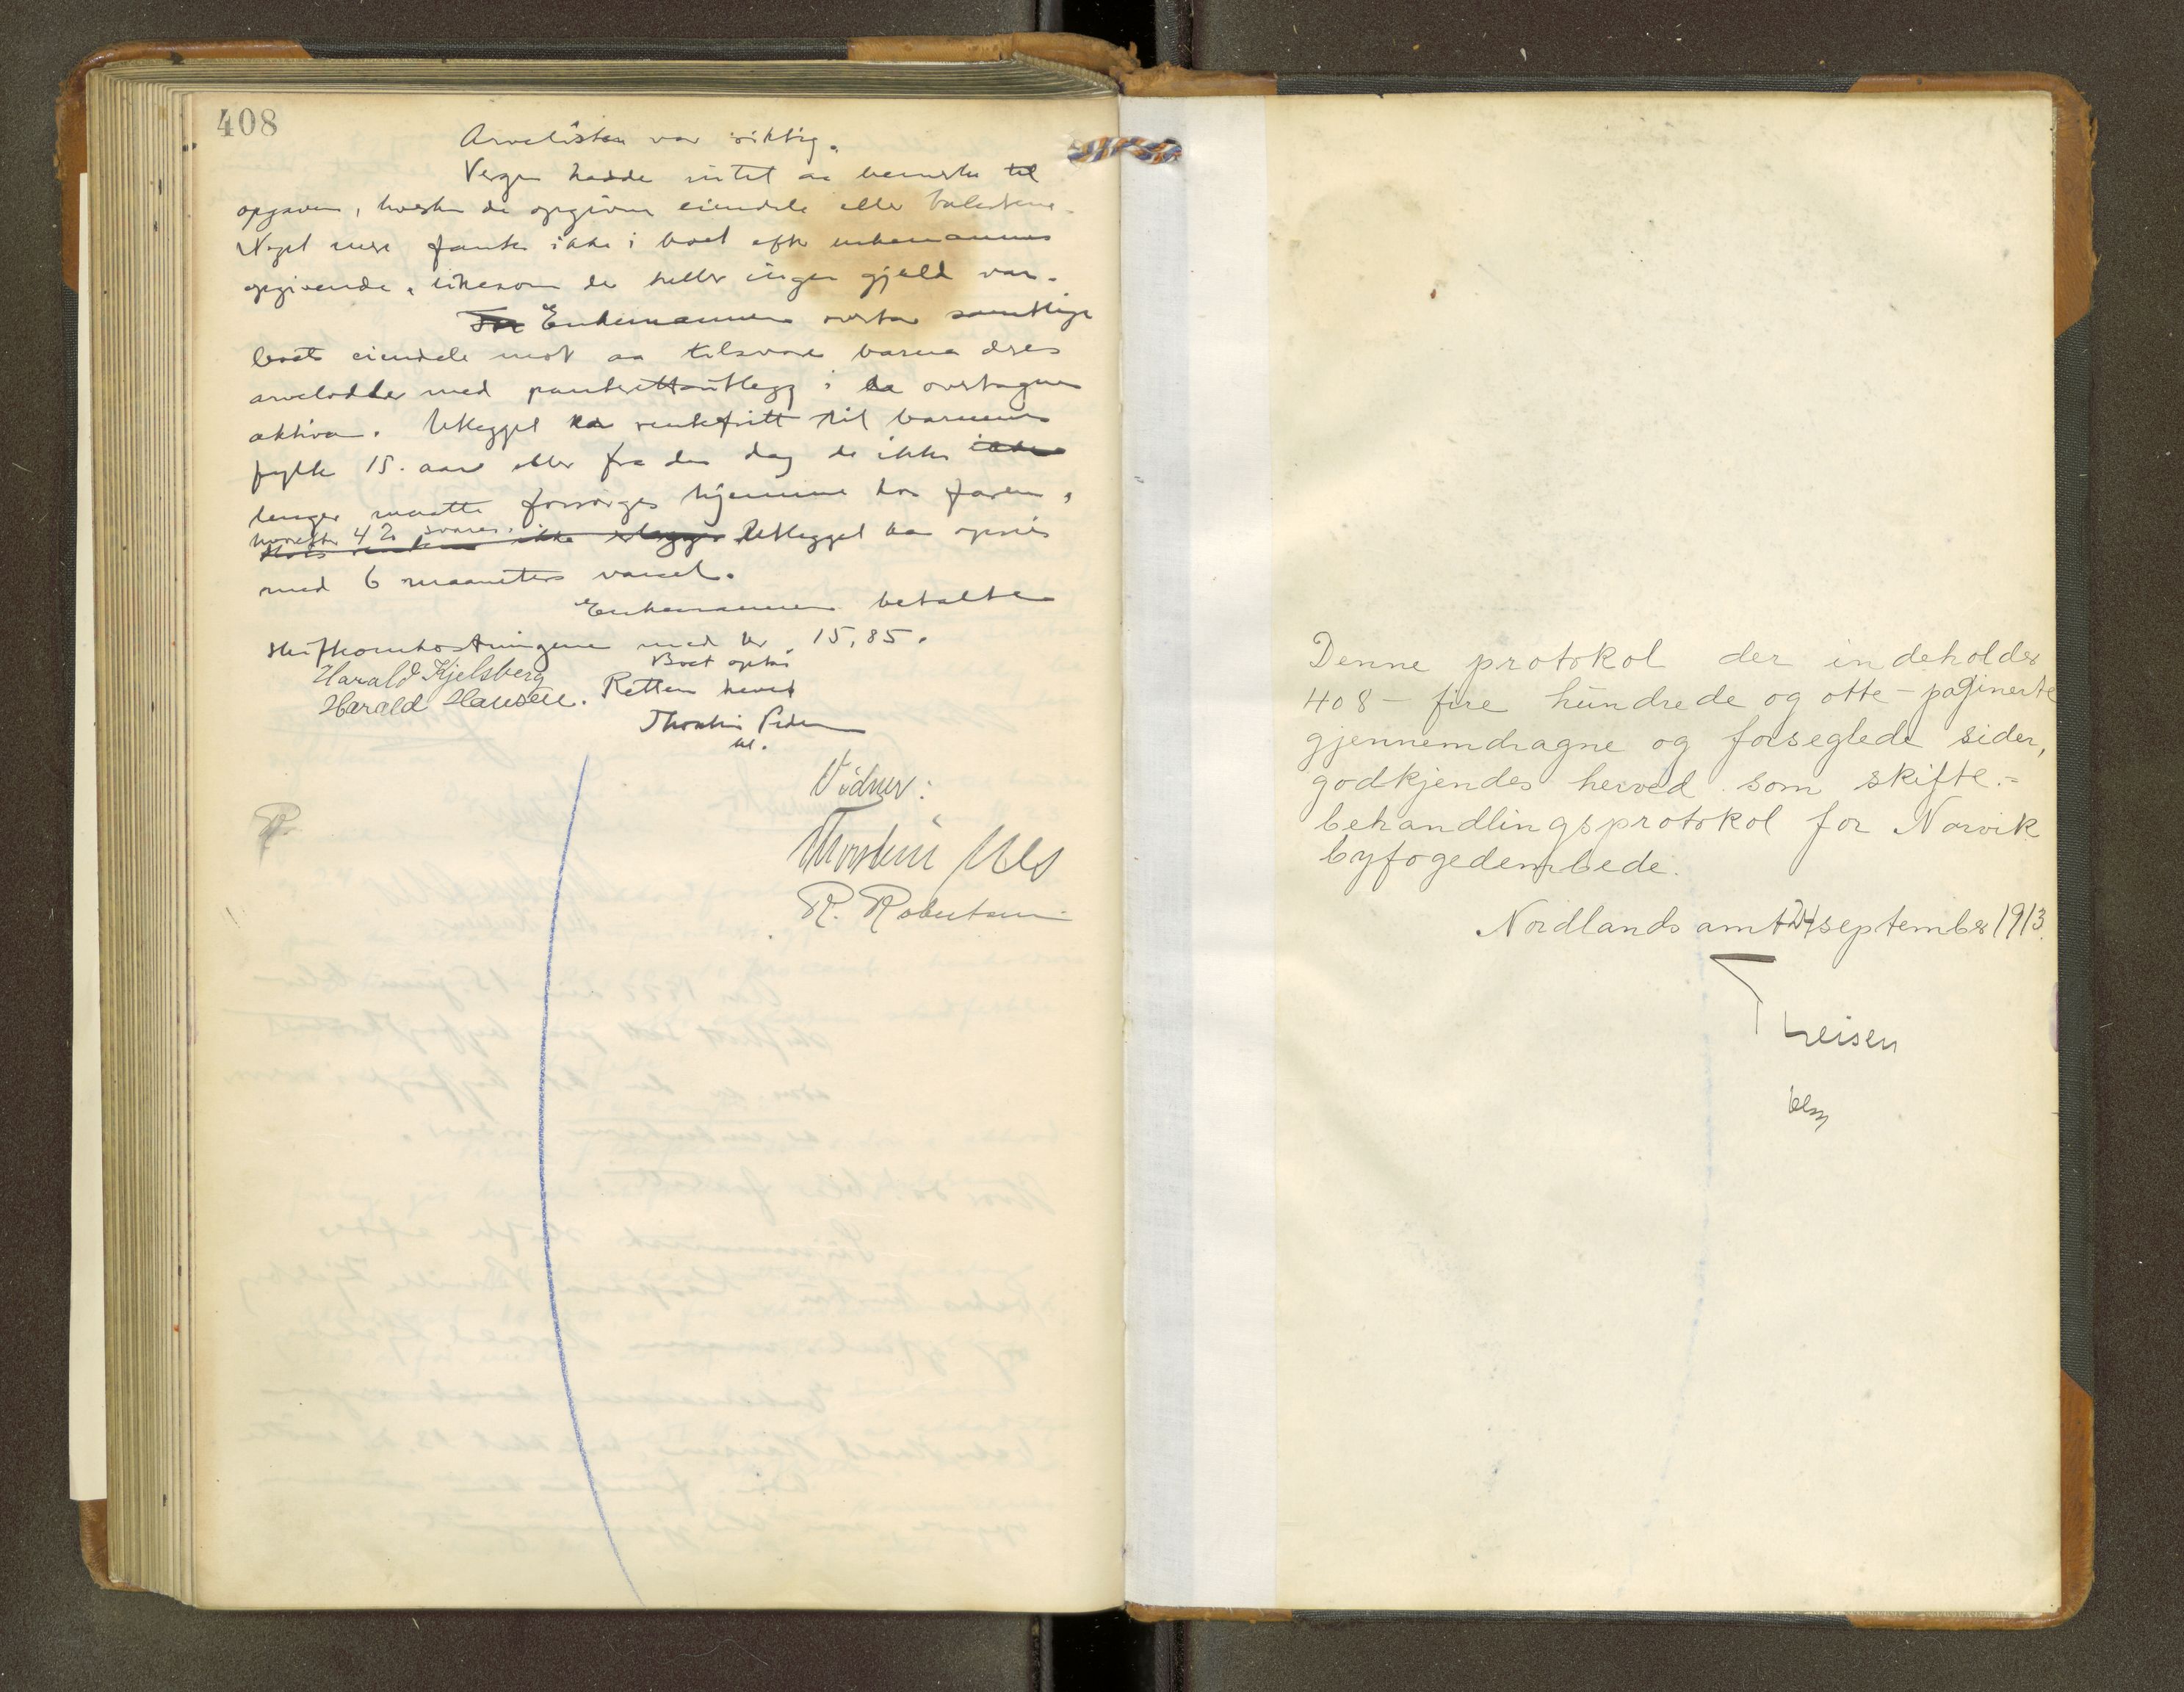 408
Arvelisten var riktig.
Vergen hadde intet aa bemerke til
opgaven, hverken de opgivne eiendele eller
Noget mere fantes ikke i boet efter enkemannens
opgivende, likesom der heller ingen gjeld var.
Enkemannen overtar samtlige
boets eiendele mot aa tilsvare barna deres
arvelodder med panterettsutlegg i de overtagne
aktiva. Utlegget er rentefritt til barnene
fyller 15 aar eller fra den dag de ikke ikke
lenger maatte forsørges hjemme hos faren,
hvorefter 4 % svares.
Hvis rentene ikke erlegges Utlegget kan opsies
med 6 maaneters varsel.
Enkemannen betalte
skifteomkostningene med kr. 15,85.
Boet optat
Harald Kjelsberg
Retten hevet
Harald Hansen.
Thorstein
Vidner:
Thorstein
R. Robertsen
Denne protokol der indeholder
408 – fire hundrede og otte – paginerte
gjennemdragne og forseglede sider,
godkjendes herved som skifte-
behandlingsprotokol for Narvik
byfogedembede.
Nordlands amt 24 september 1913.